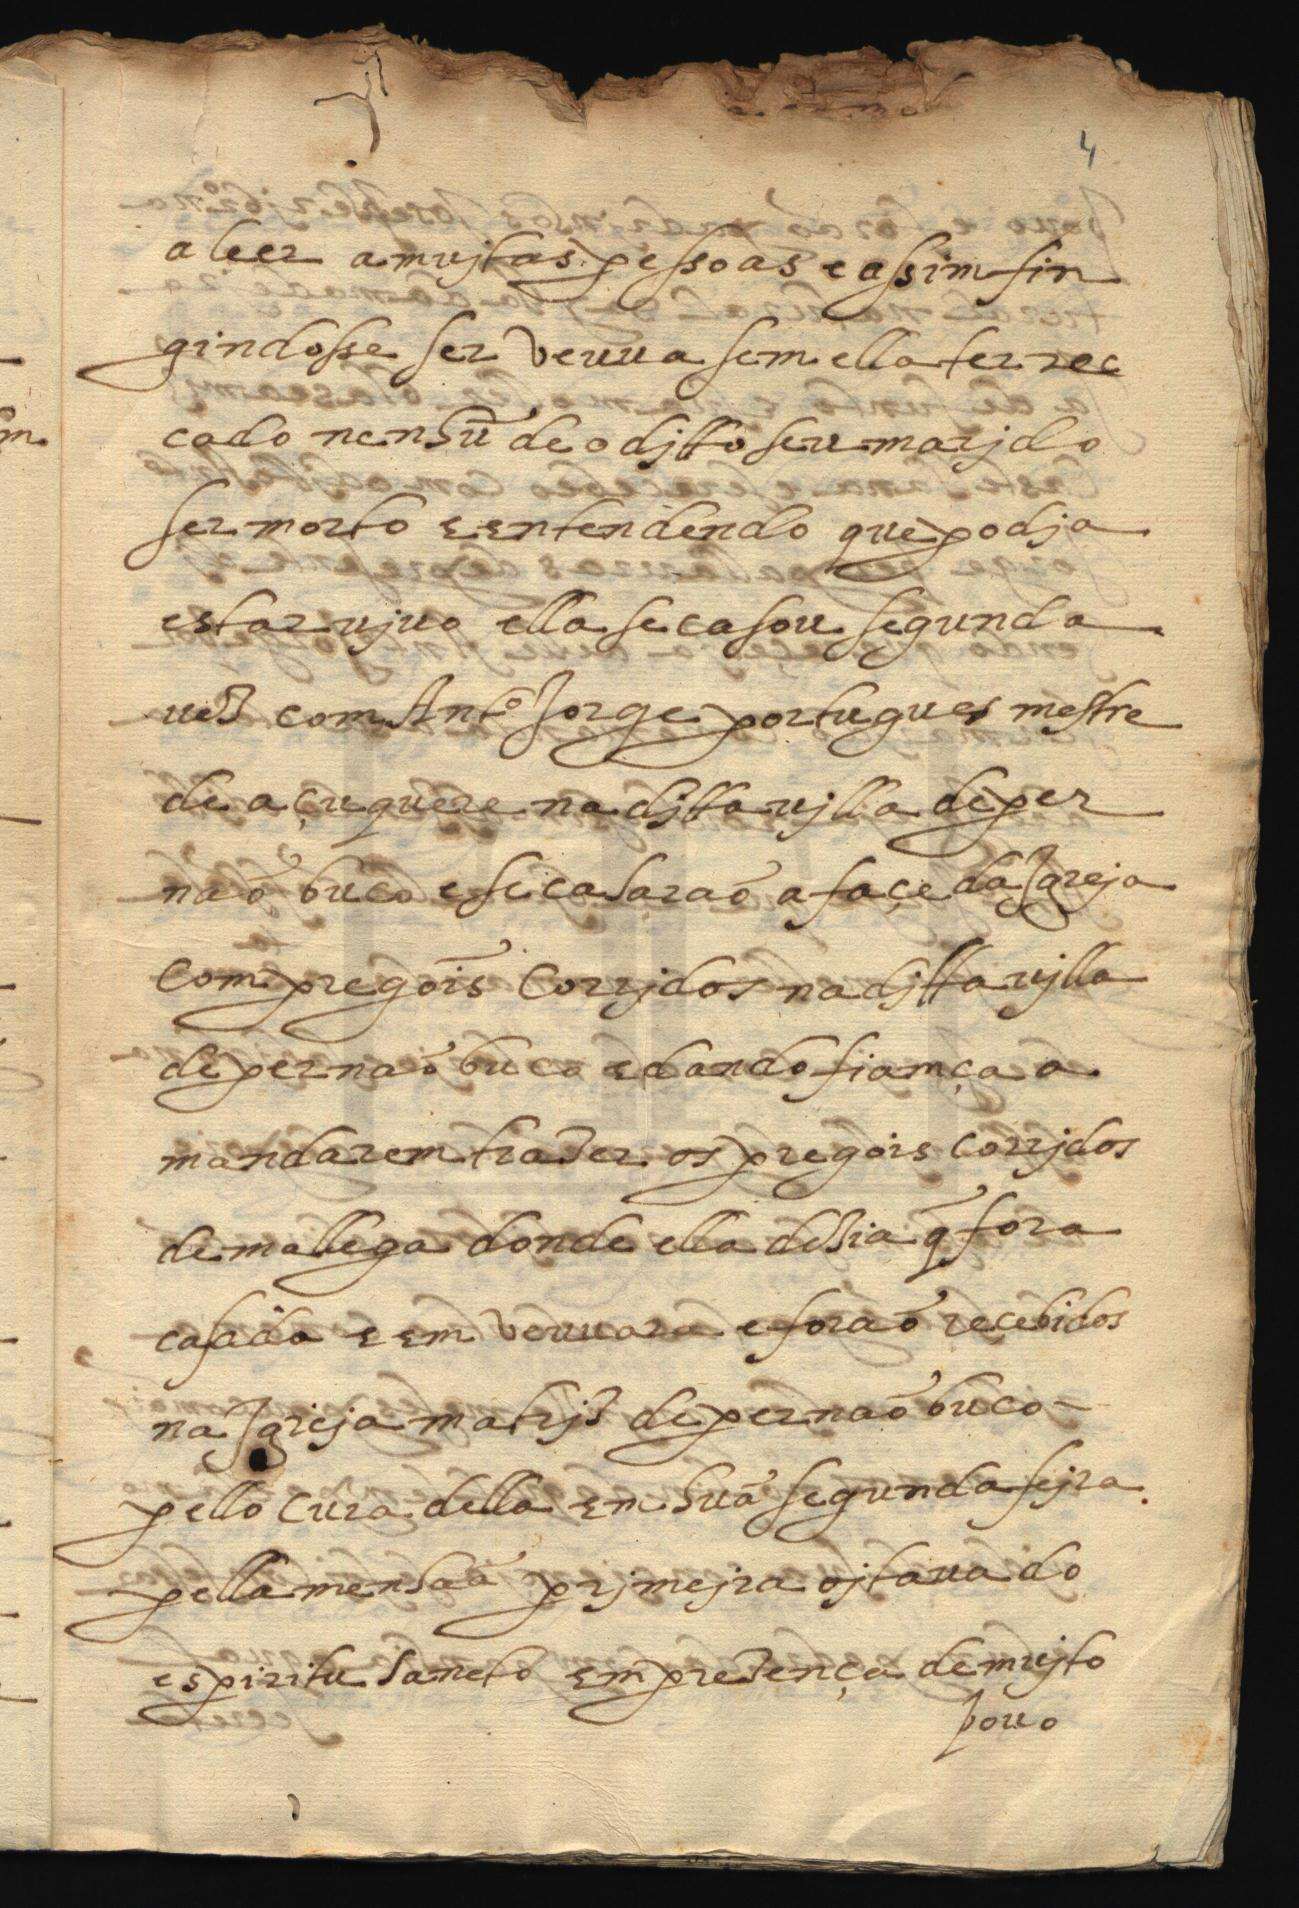 4
a leer a mujtas pessoas e assim fin
gindosse ser veuua sem ella ter rec
cado nenhũ de o djtto seu marjdo
ser morto e entendendo que podja
estar ujuo ella se casou segunda
uez com Antº Jorge portugues mestre
de açuquere na djtta ujlla de per
naõ buco e se casaraõ a façe da Igreja
com pregõis corrjdos na djtta ujlla
de pernaõ buco e dando fiamça a
mandarem trazer os pregois corrjdos
de mallega donde ella dezia q̃ fora
casada e em veuuara e foraõ recebidos
na Igreja matrjz de pernaõ buco
pello cura della em huã segunda fejra
pella menhaã prjmejra ojtaua do
espiritu Sancto em prezença de mujto
pouo